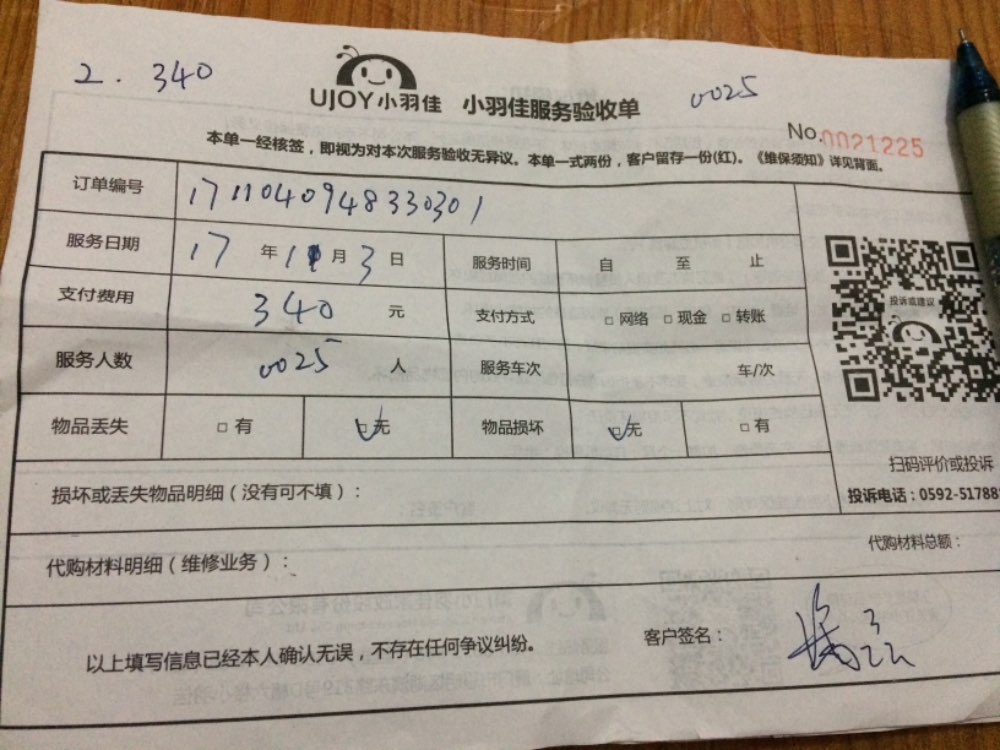 2. 340
UJOY小羽佳 小羽佳服务验收单
0025
No.0021225
本单一经核签，即视为对本次服务验收无异议。本单一式两份，客户留存一份(红)。《维保须知》详见背面。
订单编号 1711040948330301
服务日期 17 年 11 月 3 日 服务时间 自 至 止
支付费用 340 元 支付方式 □ 网络 □ 现金 □ 转账
服务人数 0025 人 服务车次 车/次
物品丢失 □ 有 □ 无 物品损坏 □ 无 □ 有
投诉或建议
扫码评价或投诉
投诉电话：0592-51788
损坏或丢失物品明细（没有可不填）：
代购材料明细（维修业务）： 代购材料总额：
以上填写信息已经本人确认无误，不存在任何争议纠纷。 客户签名：